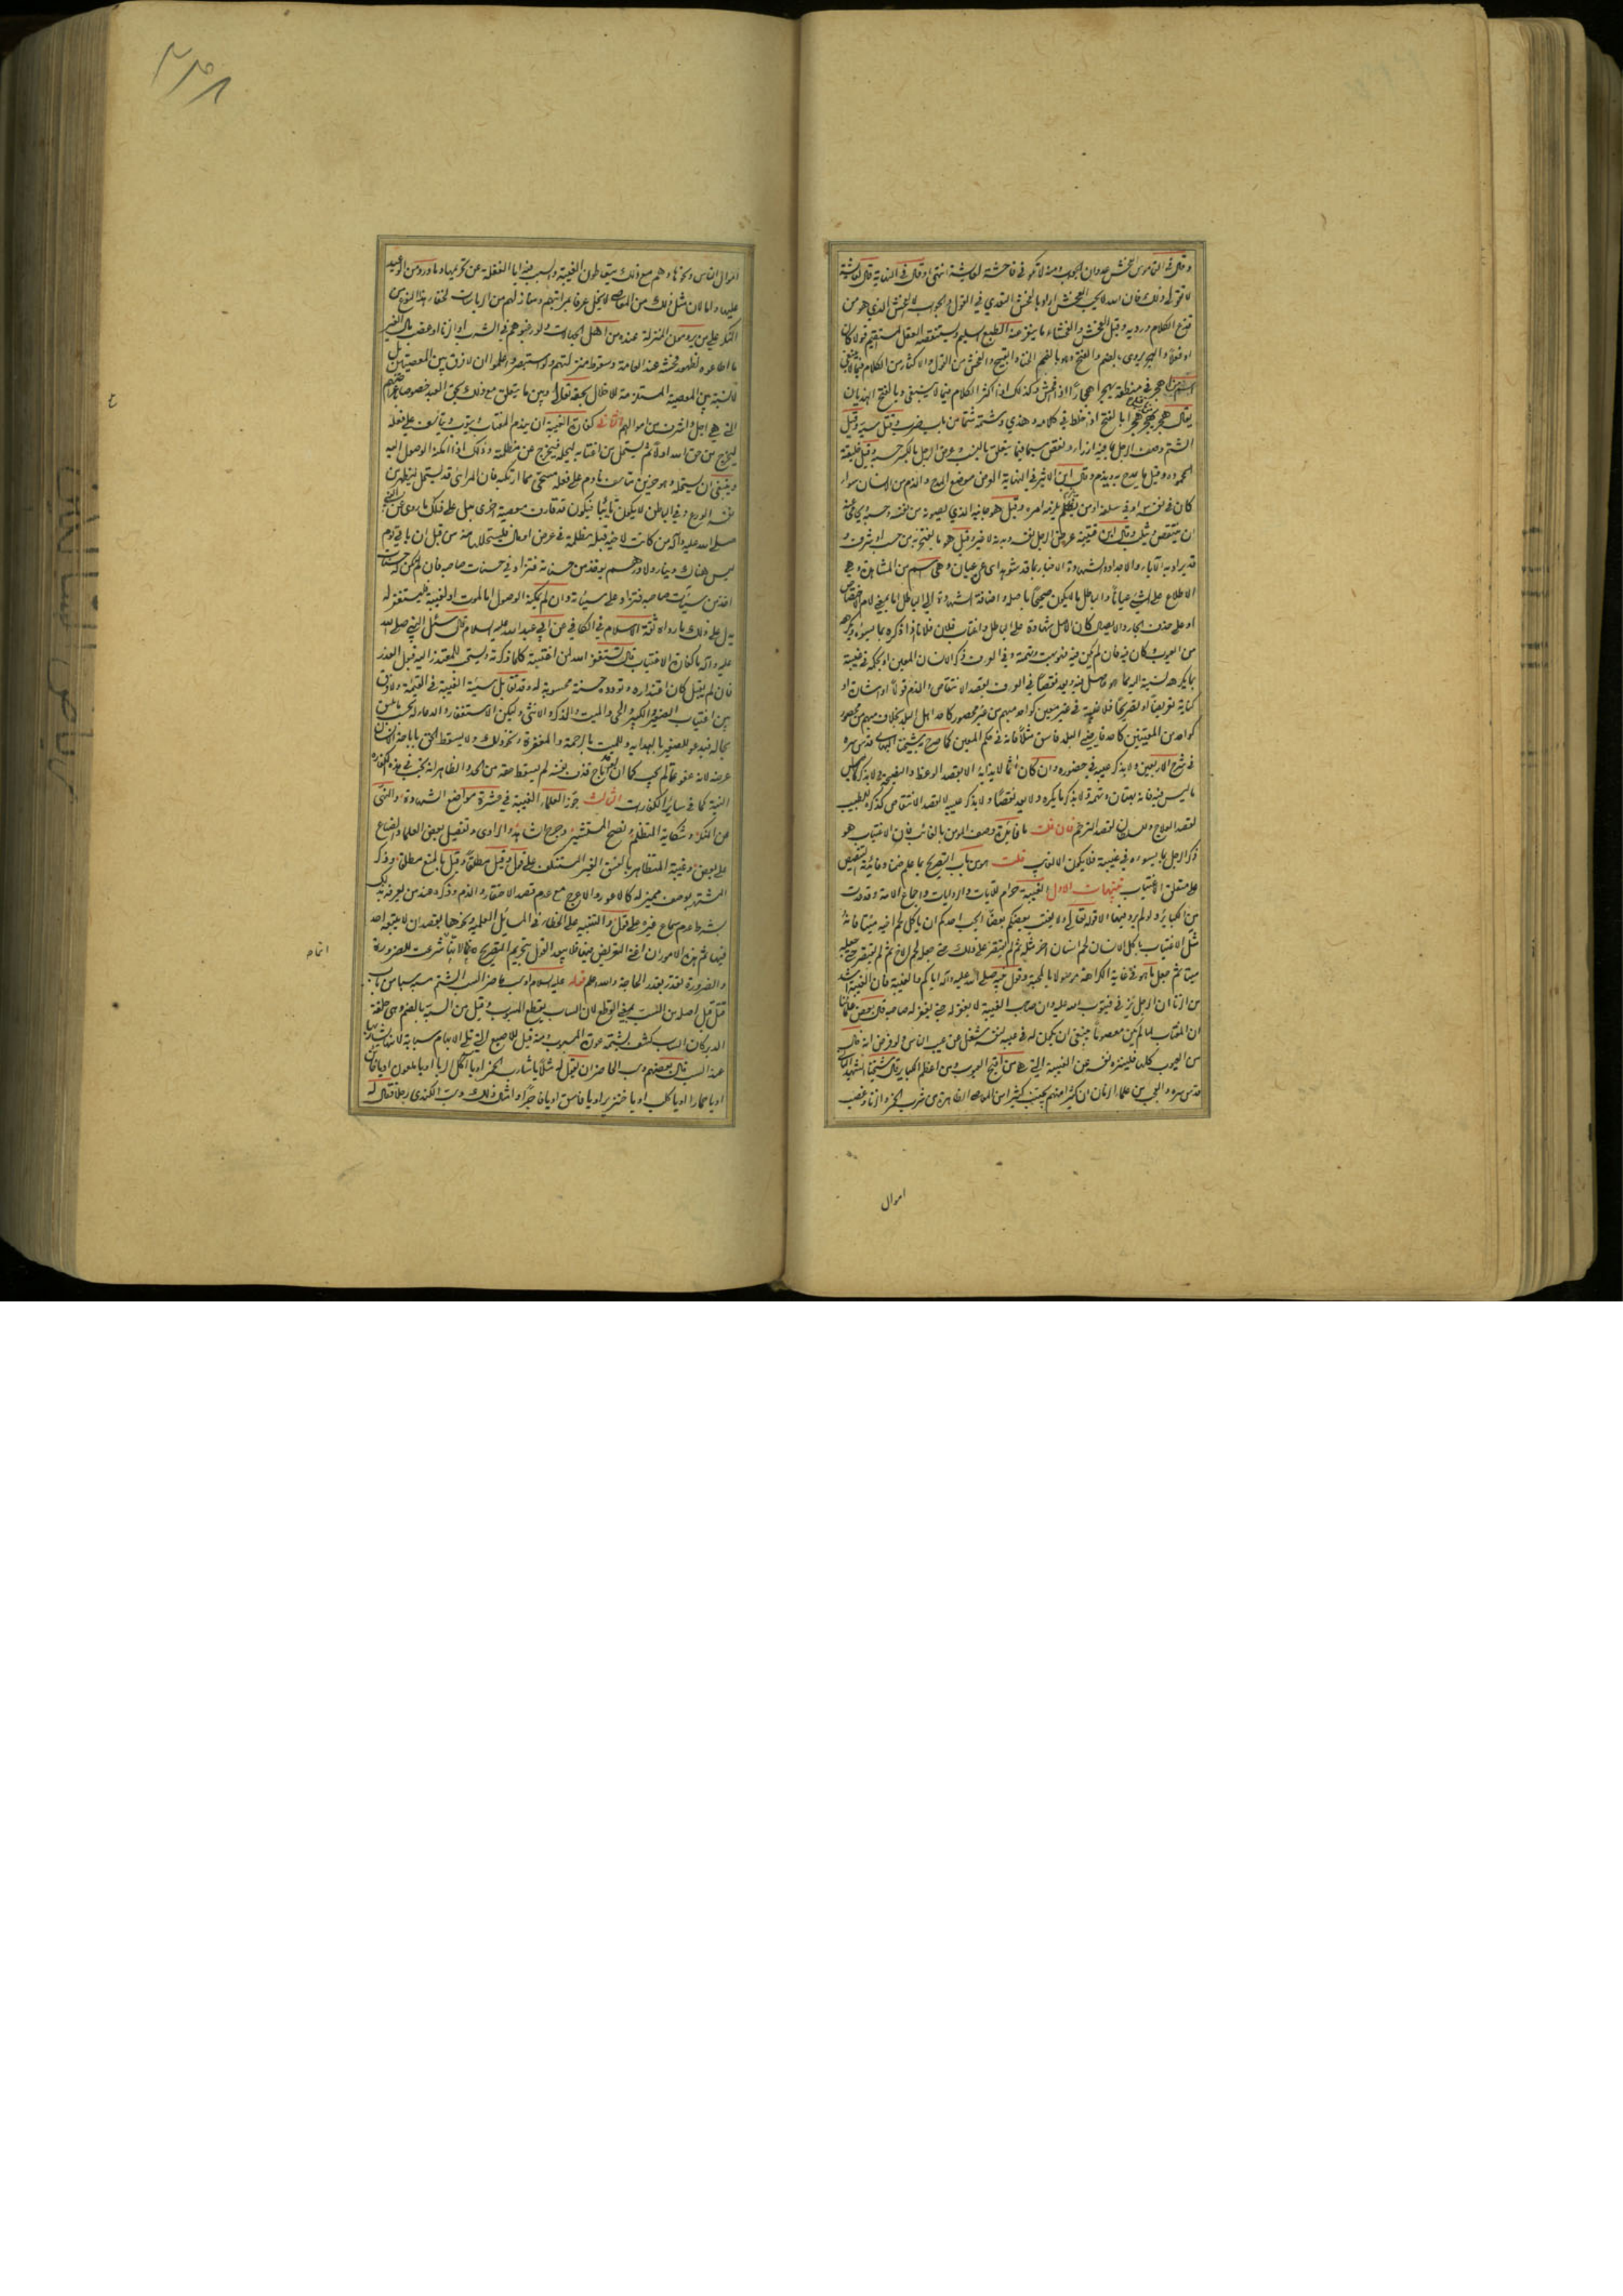 وقال في القاموس الفحش عدوان الجواب ومنه لا تكوني فاحشة لعائشة انتهى وقال في النهاية قال لعائشة
لا تقولي ذلك فان الله لا يحب الفحش اراد بالفحش التعدي في القول والجواب لا الفحش الذي هو من
قذع الكلام ورديه وقيل الفحش والفحشاء ما ينفر عنه الطبع السليم ويستنقصه العقل المستقيم قولا كان
او فعلا والهجر يروى بالضم والفتح وهو بالضم الخنا والقبيح والفحش من القول والاكثار من الكلام فيما لا ينبغي
اهجر في منطقه يهجر اهجارا اذا فحش وكذلك اذا اكثر الكلام فيما لا ينبغي وبالفتح الهذيان
يقال هجر يهجر هجرا بالفتح اذا خلط في كلامه وهذي وشتمه شتما من باب ضرب وقتل سبه وقيل
الشتم وصف الرجل بما فيه ازراء ونقص سيما فيما يتعلق بالنسب وعرض الرجل بالكسر حسبه وقيل خليقته
المحمودة وقيل ما يمدح به ويذم وقال ابن الاثير في النهاية العرض موضع المدح والذم من الانسان سواء
كان في نفسه او في سلفه او من يلزمه امره وقيل هو جانبه الذي يصونه من نفسه وحسبه يحامي عنه
ان ينتقص ويثلب وقال ابن قتيبة عرض الرجل نفسه وبدنه لا غير وقيل هو ما يفتخر به من حسب او شرف و
قد يراد به الآباء والاجداد والشهادة الاخبار بما قد شوهد اي عن عيان وهي اسم من المشاهدة وهي
الاطلاع على الشيء عيانا والباطل ما لا يكون صحيحا باصله واضافة الشهادة الى الباطل اما بمعنى لام الاختصاص
او على حذف الجار والايصال كان الاصل شهادة على الباطل واغتاب فلان فلانا اذا ذكره بما يسوءه ويكرهه
من العيوب وكان فيه فان لم يكن فيه فهو بهت وتهمة وفي العرف ذكر الانسان المعين او بحكمه في غيبته
بما يكره نسبته اليه مما هو حاصل فيه ويعد نقصا في العرف بقصد الانتقاص والذم قولا او اشارة او
كناية تعريضا او تصريحا فلا غيبة في غير معين كواحد مبهم من غير محصور كاحد اهل البلد بخلاف مبهم من محصور
كواحد من المعينين كاحد قاضيي البلد فاسق مثلا فانه في حكم المعين كما صرح به شيخنا البهائي قدس سره
في شرح الاربعين ولا بذكر عيبه في حضوره وان كان آثما لايذائه الا بقصد الوعظ والنصيحة ولا بذكر
ما ليس فيه فانه بهتان وتهمة ولا بذكر ما يكره ولا يعد نقصا ولا بذكر عيبه لا بقصد الانتقاص كذكره للطبيب
لقصد العلاج وللسلطان لقصد الترحم فان قلت ما فائدة وصف المؤمن بالغائب فان الاغتياب هو
ذكر الرجل بما يسوءه في غيبته فلا يكون الا لغائب قلت هو من باب التصريح بما علم ضمنا وفائدته التنصيص
على متعلق الاغتياب تنبيهات الاول الغيبة حرام للآيات والروايات واجماع الامة وقد عدت
من الكبائر ولو لم يرد فيها الا قوله تعالى ولا يغتب بعضكم بعضا ايحب احدكم ان يأكل لحم اخيه ميتا فانه
مثل الاغتياب باكل الانسان لحم انسان آخر مثله ثم لم يقتصر على ذلك حتى جعله لحم الاخ ثم لم يقتصر حتى جعله
ميتا ثم جعل ما هو في غاية الكراهة موصولا بالمحبة وقول نبيه صلى الله عليه وآله اياكم والغيبة فان الغيبة اشد
من الزنا ان الرجل يزني فيتوب الله عليه وان صاحب الغيبة لا يغفر له حتى يغفر له صاحبه قال بعض علمائنا
ان المغتاب لما لم يكن معصوما فينبغي ان يكون له في عيب نفسه شغل عن عيب الناس ولو فرض انه خال
من العيوب كلها فلينزه نفسه عن الغيبة التي هي من اقبح العيوب ومن اعظم الكبائر وقال شيخنا الشهيد الثاني
قدس سره والعجب من علماء الزمان ان كثيرا منهم يجتنب كثيرا من المعاصي الظاهرة من شرب الخمر والزنا وغصب
اموال
٢٣٨
اموال الناس ونحوها وهم مع ذلك يتعاطون الغيبة والسبب فيه اما الغفلة عن تحريمها وما ورد من الوعيد
عليها واما لان مثل ذلك من المعاصي لا يخل عرفا بمراتبهم ومنازلهم من الرياسات لخفاء هذا النوع من
المنكر على من يرومون المنزلة عنده من اهل الجهالات ولو رغبوهم في الشرب او الزنا او غصب مال الغير
ما اطاعوه لظهور فحشه عند العامة وسقوط منزلتهم ولو استبصروا علموا ان لا فرق بين المعصيتين بل
لا نسبة بين المعصية المستلزمة للاخلال بحقه تعالى وبين ما يتعلق مع ذلك بحق العبد خصوصا اعراضهم
التي هي اجل واشرف من اموالهم الثاني كفارة الغيبة ان يندم المغتاب ويتوب ويأسف على فعله
ليخرج من حق الله اولا ثم يستحل من اغتابه ليحله فيخرج عن مظلمته وذلك اذا امكنه الوصول اليه
وينبغي ان يستحله وهو حزين متأسف نادم على فعله مستحي مما ارتكبه فان المرائي قد يستحل ليظهر من
نفسه الورع وفي الباطن لا يكون تائبا فيكون قد قارف معصية اخرى يدل على ذلك ما روي عن النبي
صلى الله عليه وآله من كانت لاخيه قبله مظلمة في عرض او مال فليستحلها منه من قبل ان يأتي يوم
ليس هناك دينار ولا درهم يؤخذ من حسناته فتزاد في حسنات صاحبه فان لم يكن له حسنات
اخذ من سيئات صاحبه فتزاد على سيئاته وان لم يمكنه الوصول اما لموت او لغيبة فليستغفر له
يدل على ذلك ما رواه ثقة الاسلام في الكافي عن ابي عبد الله عليه السلام قال سئل النبي صلى الله
عليه وآله ما كفارة الاغتياب قال تستغفر الله لمن اغتبته كلما ذكرته ويستحب للمعتذر اليه قبول العذر
فان لم يقبل كان اعتذاره وتودده حسنة محسوبة له وقد تقابل سيئة الغيبة في القيمة ولا فرق
بين اغتياب الصغير والكبير والحي والميت والذكر والانثى وليكن الاستغفار والدعاء له بحسب ما يليق
بحاله فيدعو للصغير بالهداية وللميت بالرحمة والمغفرة ونحو ذلك ولا يسقط الحق باباحة الانسان
عرضه لانه عفو عما لم يجب كما ان لو اباح قذف نفسه لم يسقط حقه من الحد والظاهر انه يجب في هذه الكفارة
النية كما في سائر الكفارات الثالث جوز العلماء الغيبة في عشرة مواضع الشهادة والنهي
عن المنكر وشكاية المتظلم ونصح المستشير وجرح الشاهد والراوي وتفضيل بعض العلماء والصناع
على بعض وغيبة المتظاهر بالفسق الغير المستنكف على قول وقيل مطلقا وقيل بالمنع مطلقا وذكر
المشتهر بوصف مميز له كالاعور والاعرج مع عدم قصد الاحتقار والذم وذكره عند من يعرفه بذلك
بشرط عدم سماع غيره على قول والتنبيه على الخطأ في المسائل العلمية ونحوها بقصد ان لا يتبعه احد
فيها ثم هذه الامور ان اغنى التعريض فيها فلا يبعد القول بتحريم التصريح لانها انما شرعت للضرورة
والضرورة تقدر بقدر الحاجة والله اعلم قوله عليه السلام او سب حاضر السب الشتم سبه سبا من باب
قتل قيل اصله من السب بمعنى القطع لان الساب يقطع المسبوب وقيل من السبة بالضم وهي حلقة
الدبر كان الساب كشف بشتمه عورة المسبوب ومنه قيل للاصبع التي تلي الابهام سبابة لانه يشار بها
عند السب قال بعضهم وسب الحاضر ان يقول له مثلا يا شارب الخمر او يا آكل الربا او يا ملعون او يا خائن
او يا حمار او يا كلب او يا خنزير او يا فاسق او يا فاجر او امثال ذلك وسب الكندي رجلا فقال له